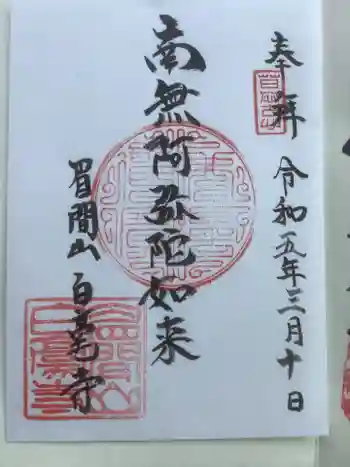 奉拝 令和五年三月十日
南無阿弥陀如来
眉間山 白毫寺